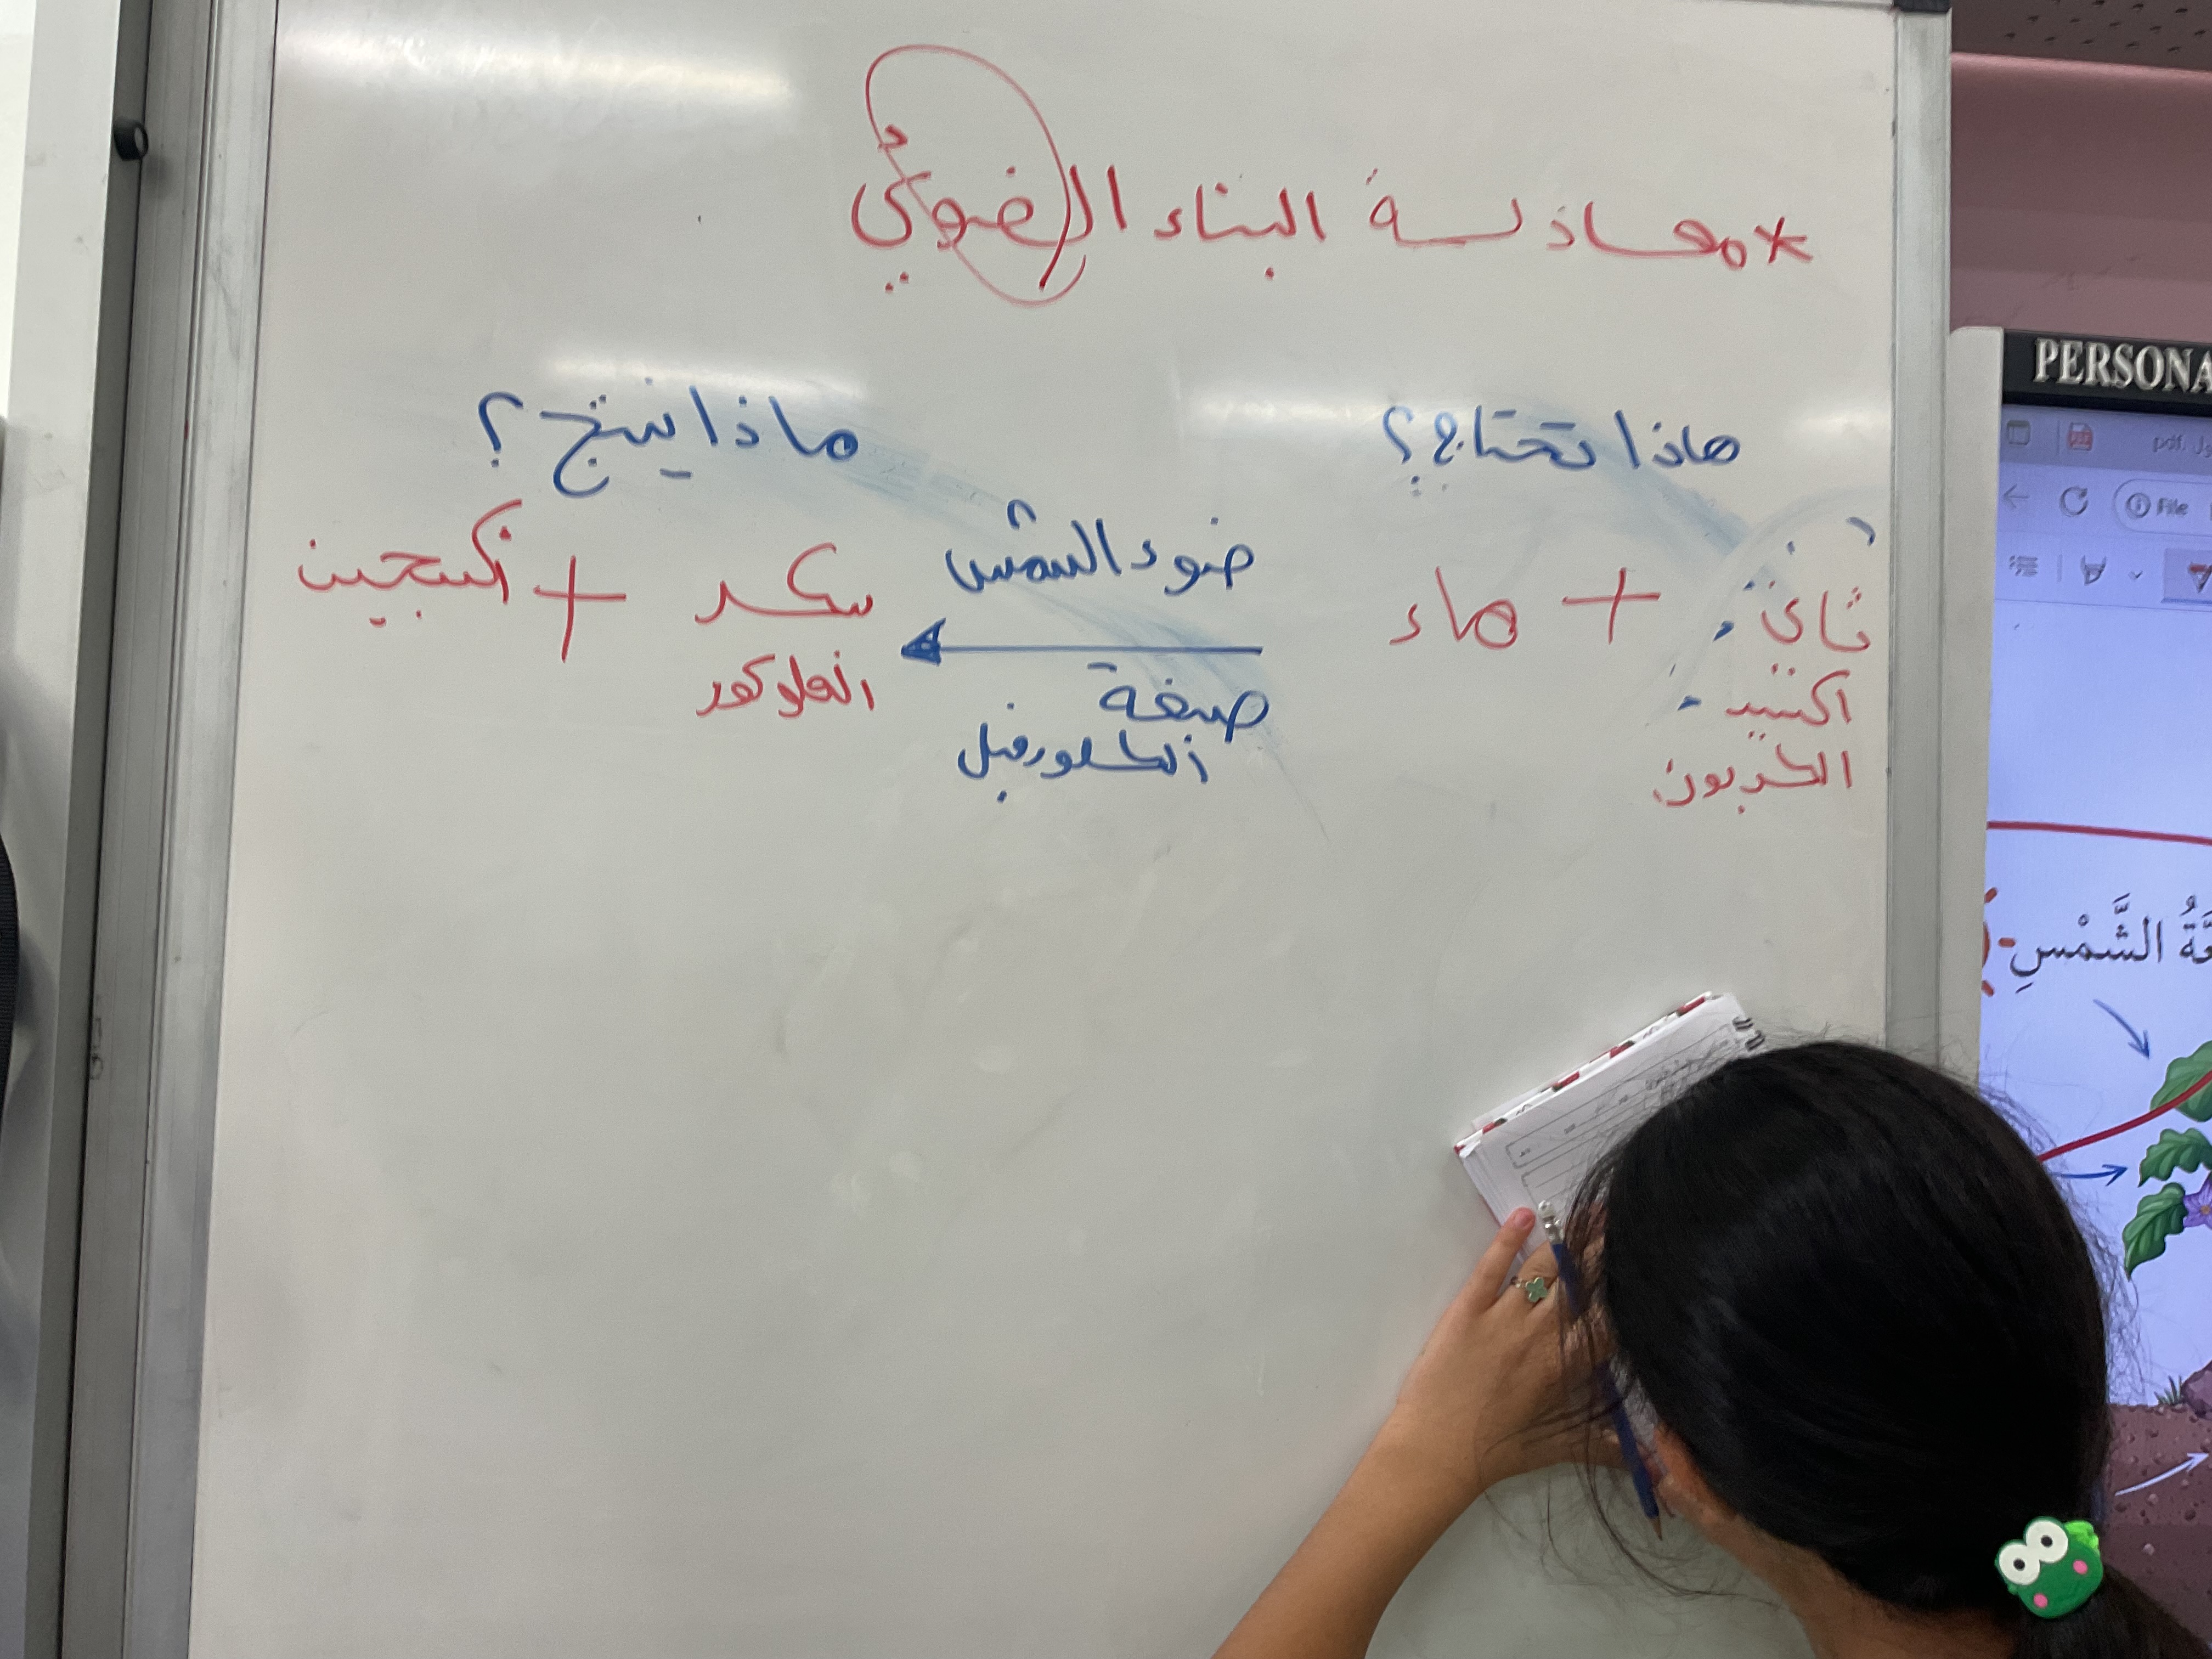 *معادلة البناء الضوئي
ماذا تحتاج؟
ماذا ينتج؟
ثاني
اكسيد
الكربون
+ ماء
ضوء الشمس
صبغة
الكلورفيل
سكر
+ اكسجين
PERSONA
pdf.
File
الشَّمْسِ